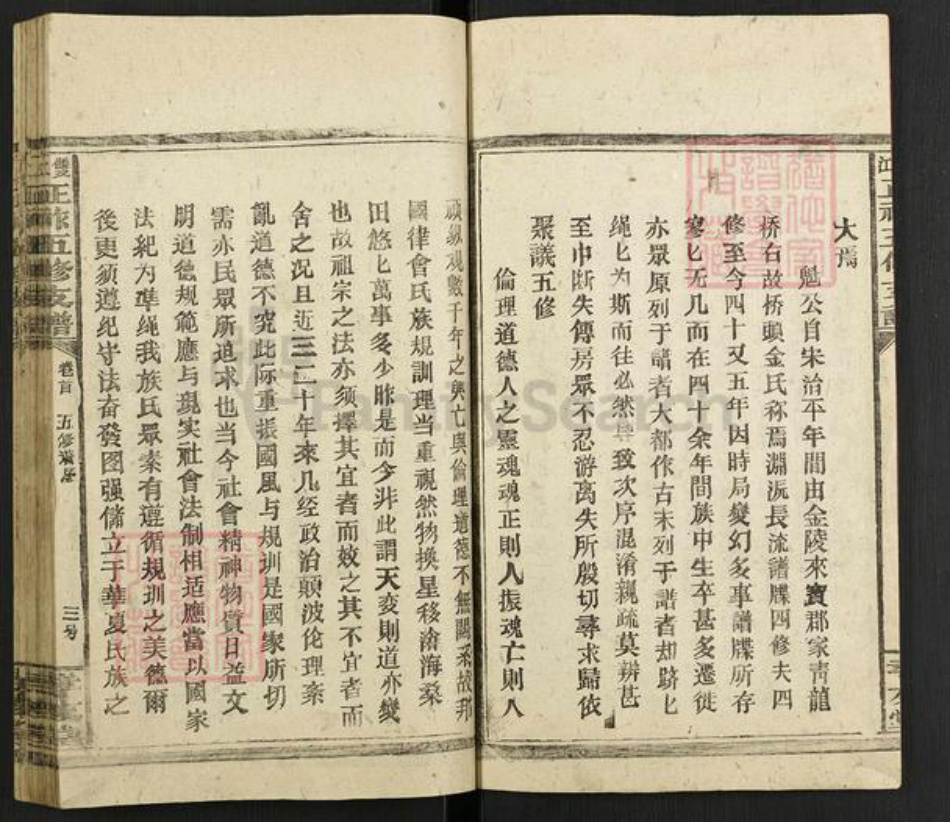 大焉
勉公自宋治平年間由金陵來寳郡家靑龍
桥右故桥頭金氏称焉淵源長流譜牒四修夫四
修至今四十又五年因時局變幻多事譜牒所存
寥匕无几而在四十余年間族中生卒甚多遷徙
亦眾原列于譜者大都作古未列于譜者却躋匕
绳匕为斯而往必然肆致次序混淆親疏莫辨甚
至巾断失傳房眾不忍游离失所殷切尋求歸依
聚議五修
倫理道德人之靈魂魂正則人振魂亡則人
頑縱观數千年之興亡與倫理道德不無關系故邦
國律會氏族規訓理当重視然物换星移滄海桑
田悠匕萬事多少昨是而今非此謂天变則道亦變
也故祖宗之法亦须擇其宜者而效之其不宜者而
舍之况且近三二十年來几经政治顛波伦理紊
亂道德不究此际重振國風与規训是國家所切
需亦民眾所追求也当今社會精神物質日益文
明道德規範應与現实社會法制相适應當以國家
法紀为準绳我族氏眾素有遵循規训之美德爾
後更须遵纪守法奋發图强儲立于華夏氏族之
雙江正派五修支譜
卷首
三号
FamilySearch